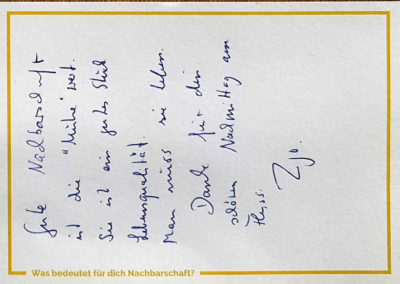 Gute Nachbarschaft
ist die "Mühe" wert.
Sie ist ein gutes Stück
Lebensqualität.
Man muss sie leben.
Danke für den
schönen Nachmittag am
Fluss.
Was bedeutet für dich Nachbarschaft?